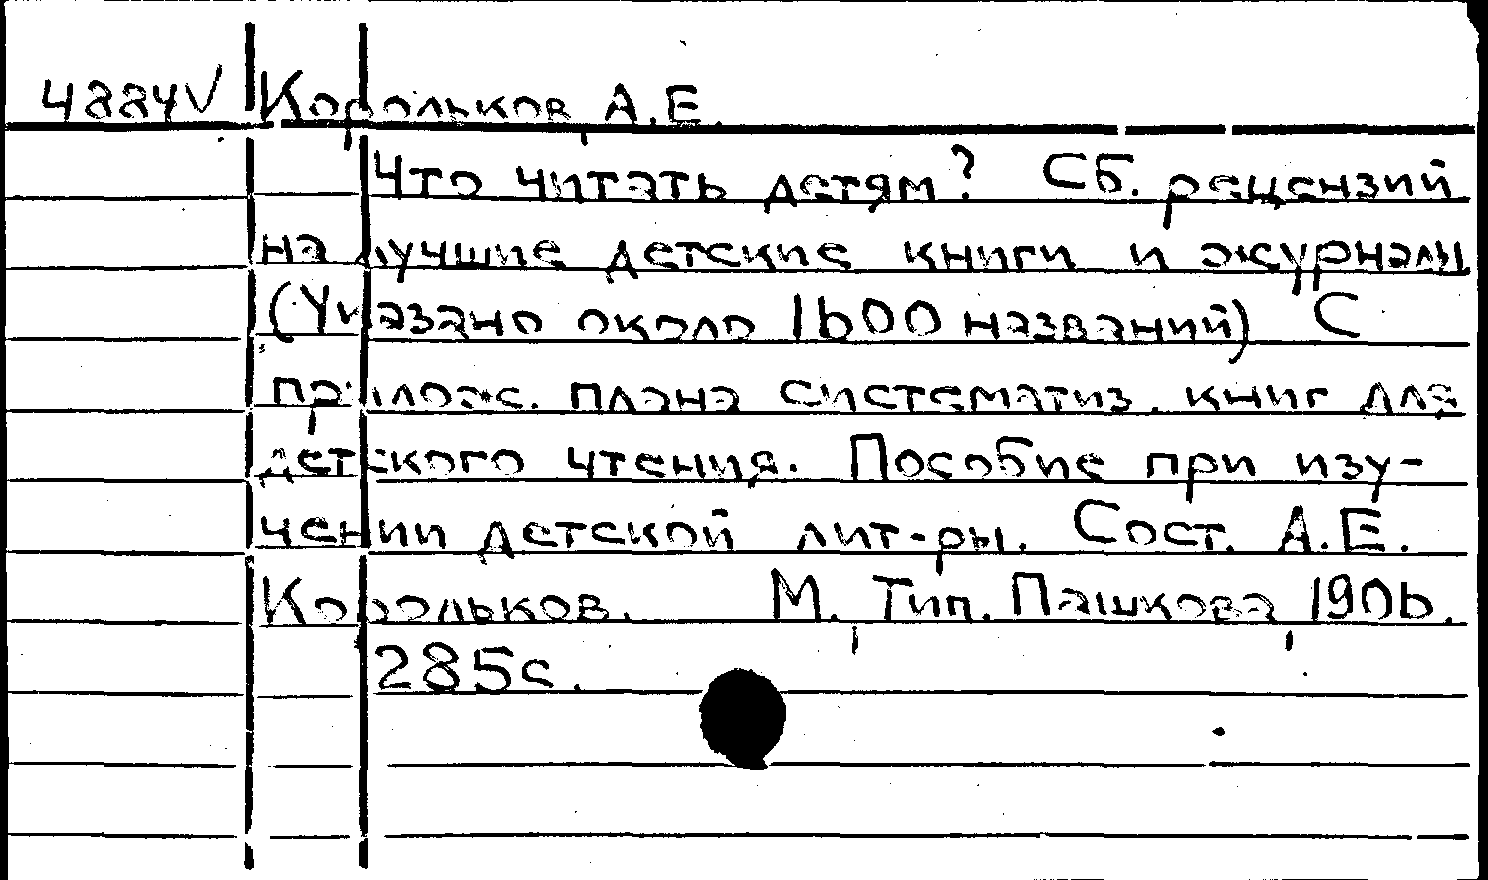 4884V Корольков А.Е.
Что читать детям? Сб. рецензий
на лучшие детские книги и журналы
(Указано около 1600 названий) С
прилож. плана систематиз. книг для
детского чтения. Пособие при изу-
чении детской лит-ры. Сост. А.Е.
Корольков. М. Тип. Пашкова 1906.
285с.